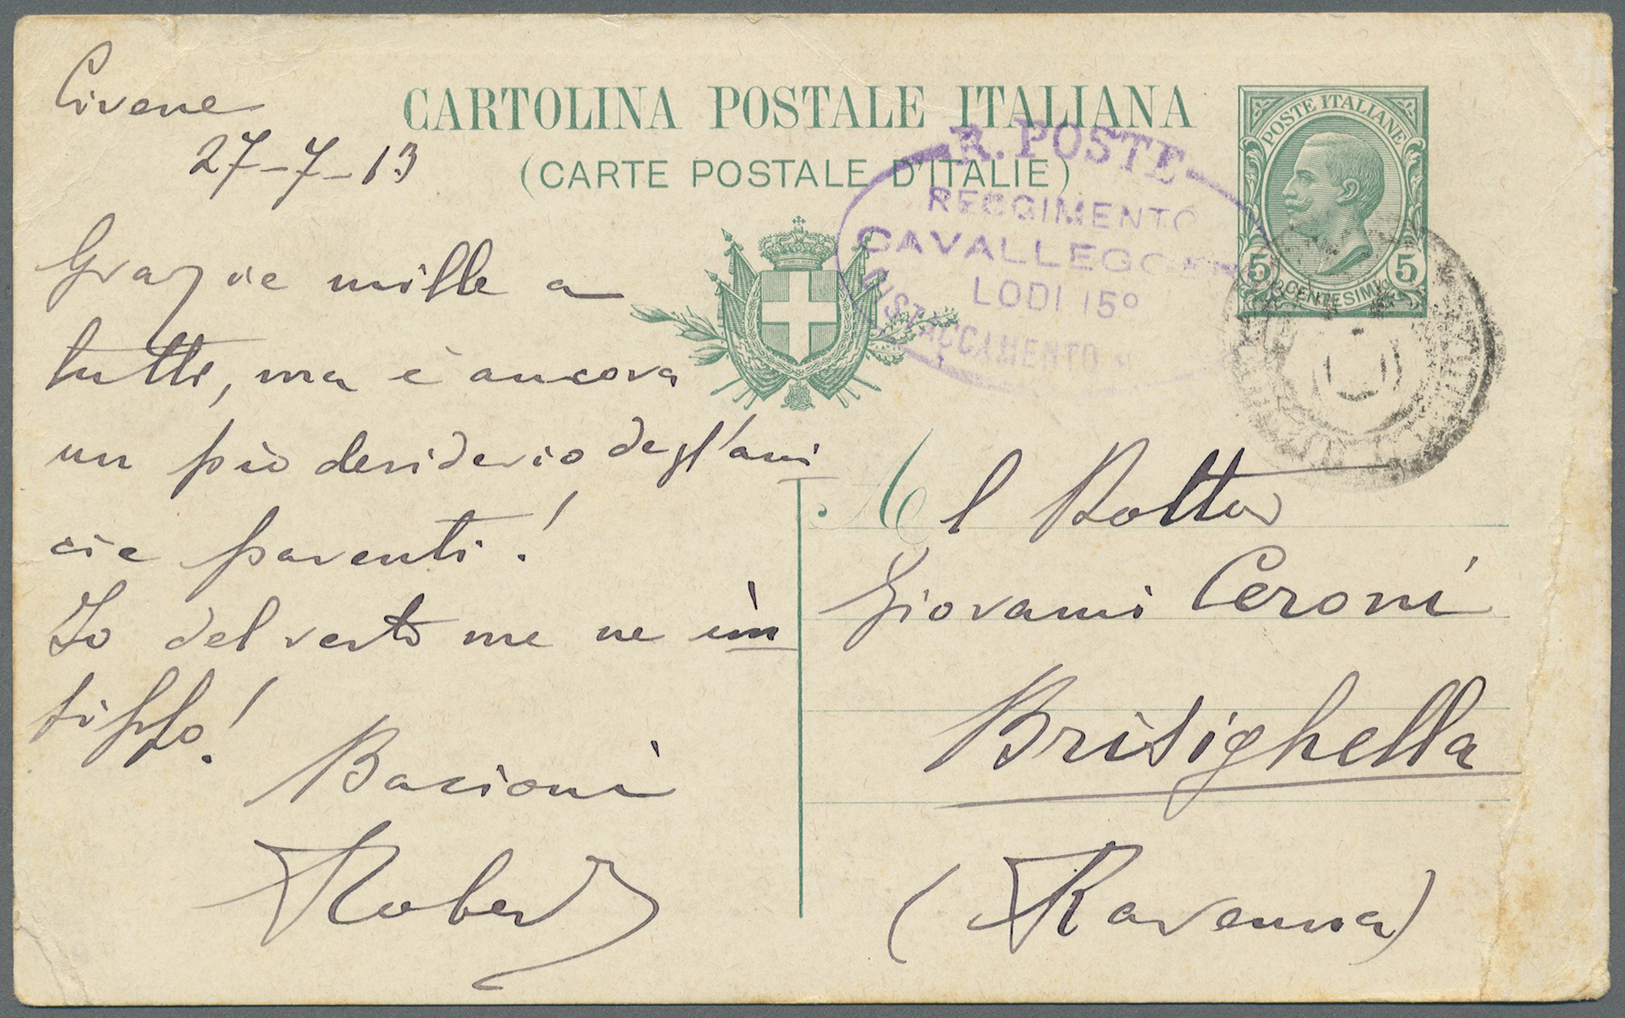 Cirene
27-7-13
CARTOLINA POSTALE ITALIANA
(CARTE POSTALE D'ITALIE)
Grazie mille a
tutti, ma è ancora
un pio desiderio degl'ami
ci e parenti!
Io del resto me ne in
fischio!
Bacioni
Robert
R. POSTE
REGGIMENTO
CAVALLEGGERI
LODI 15º
DISTACCAMENTO
POSTE ITALIANE
5 CENTESIMI 5
Al Dottor
Giovanni Ceroni
Brisighella
(Ravenna)